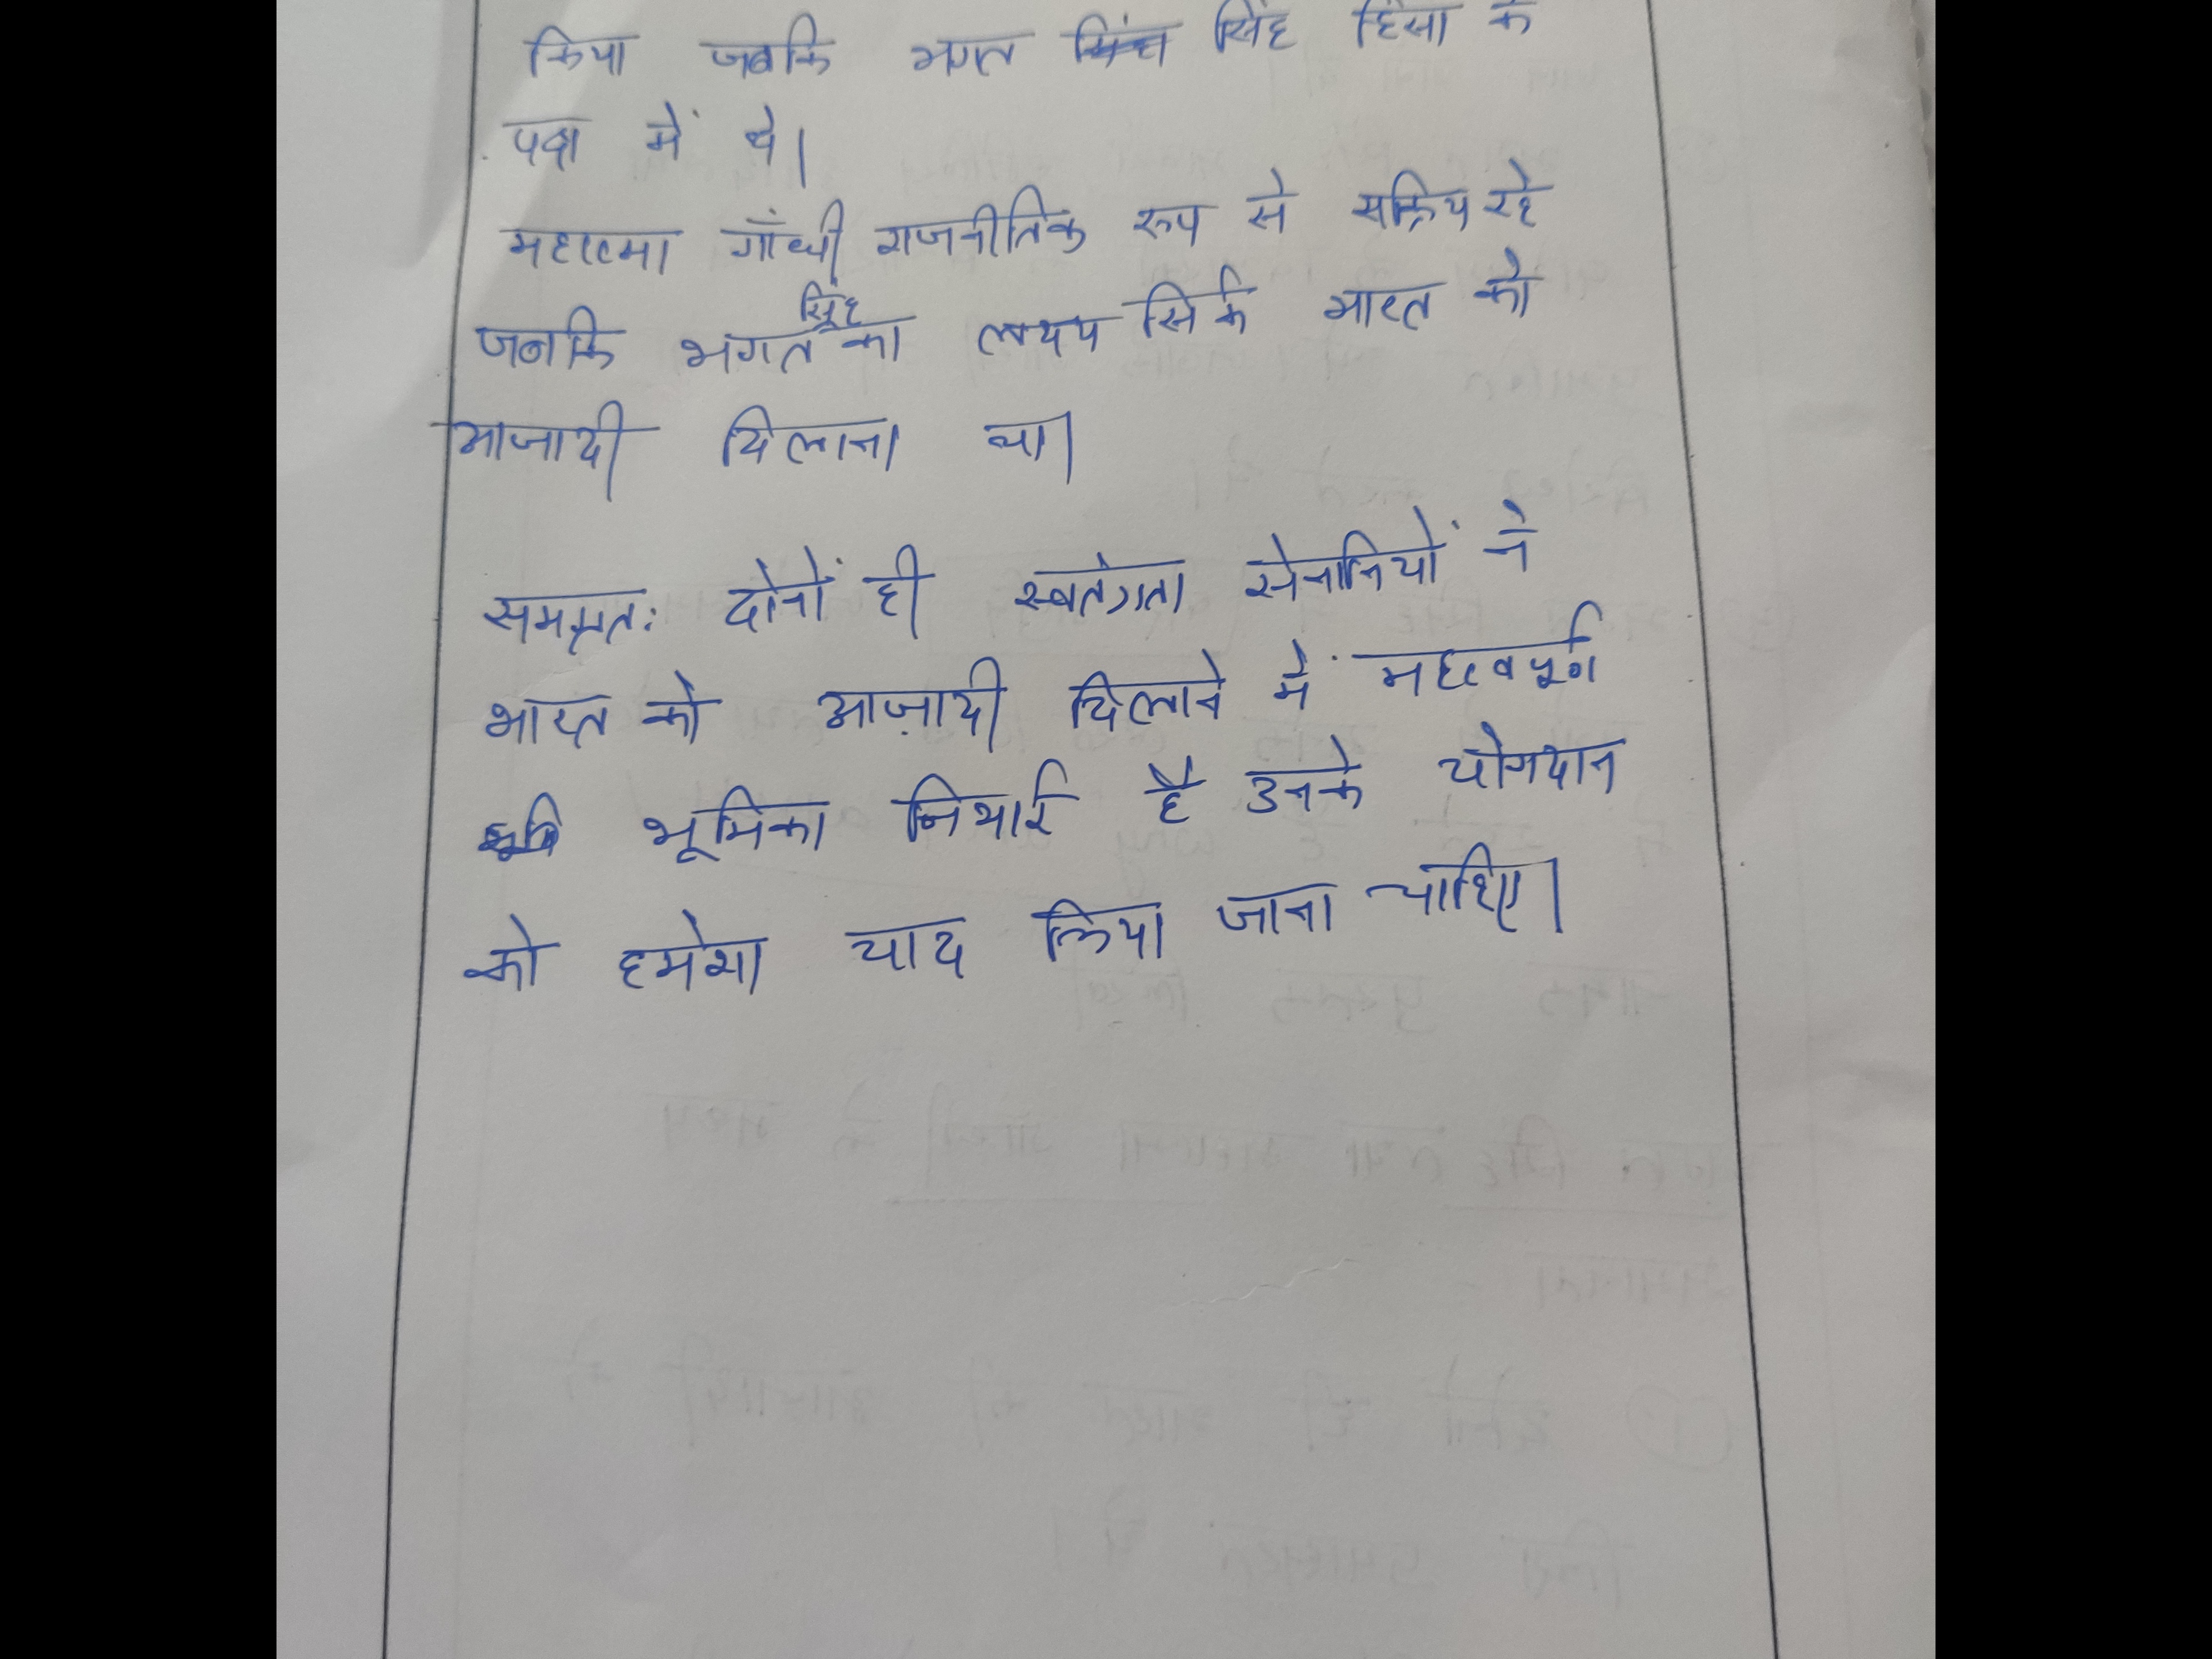 किया जबकि भगत सिंह हिंसा के
पक्ष में थे।
महात्मा गाँधी राजनीतिक रूप से सक्रिय रहे
जबकि भगत सिंह का लक्ष्य सिर्फ भारत को
आजादी दिलाना था।
समग्रत: दोनों ही स्वतंत्रता सेनानियों ने
भारत को आज़ादी दिलाने में महत्वपूर्ण
भूमिका निभाई है उनके योगदान
को हमेशा याद किया जाना चाहिए।